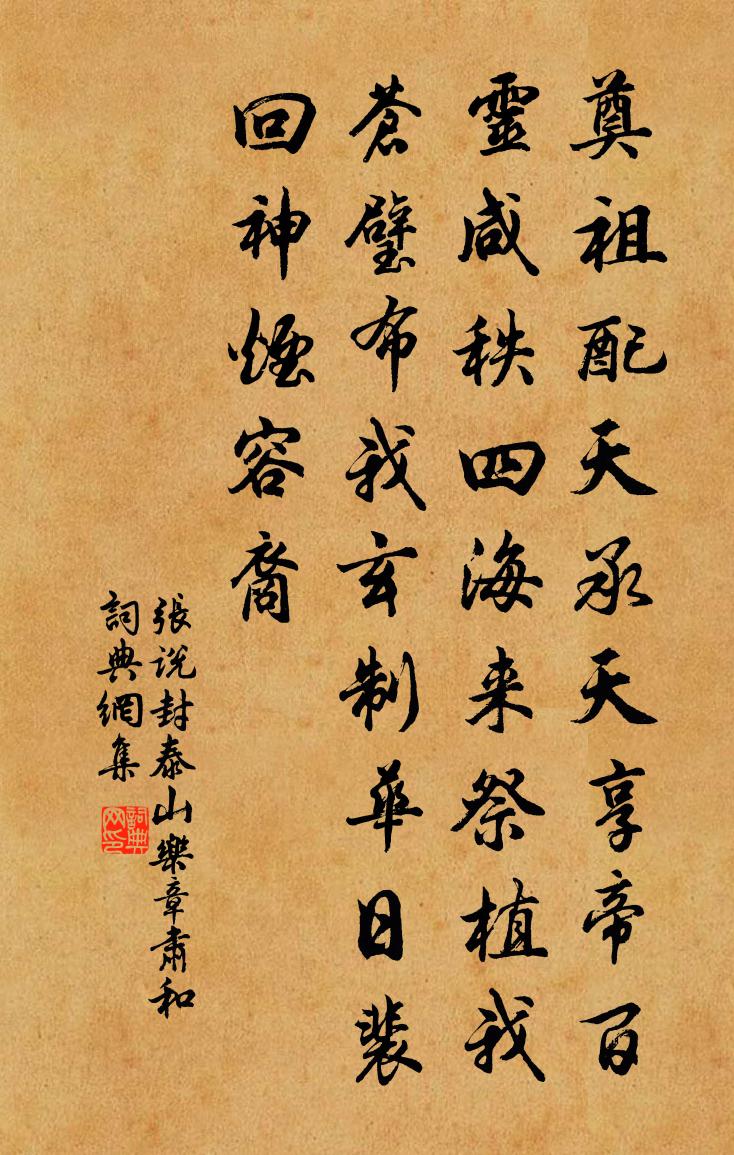 奠祖配天承天天享帝百
靈咸秩四海来祭植我
蒼璧布我玄制華日裴
回神煙容裔
張说封泰山樂章肅和
詞典網集
詞典网印